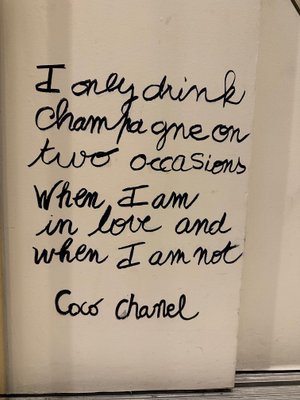 I only drink
Champagne on
two occasions
When I am
in love and
when I am not
Coco Chanel